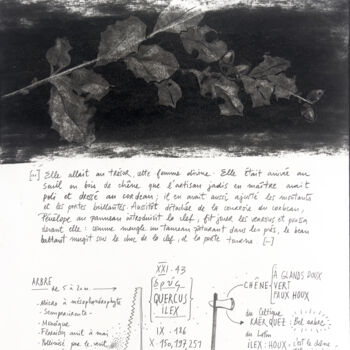 [...] Elle allait au trésor, cette femme divine. Elle était arrivée au
seuil en bois de chêne que l'artisan jadis en maître avait
poli et dressé au cordeau; il en avait aussi ajusté les montants
et les portes brillantes. Aussitôt détachée de la courroie du corbeau,
Pénélope au panneau introduisit la clef, fit jouer les verrous et poussa
devant elle: comme meugle un taureau pâturant dans les prés, le beau
battant mugit sous le choc de la clef, et la porte tourna [...]
ARBRE
de 5 à 20 m
Sempervirente
Monoïque
Floraison avril à mai
Pollinisé par le vent
XXI.43
QUERCUS
ILEX
IX.126
X.150, 197, 251
CHÊNE
À GLANDS DOUX
VERT
FAUX HOUX
du Celtique
KAERQUEZ: Bel arbre
du Latin
ILEX: HOUX